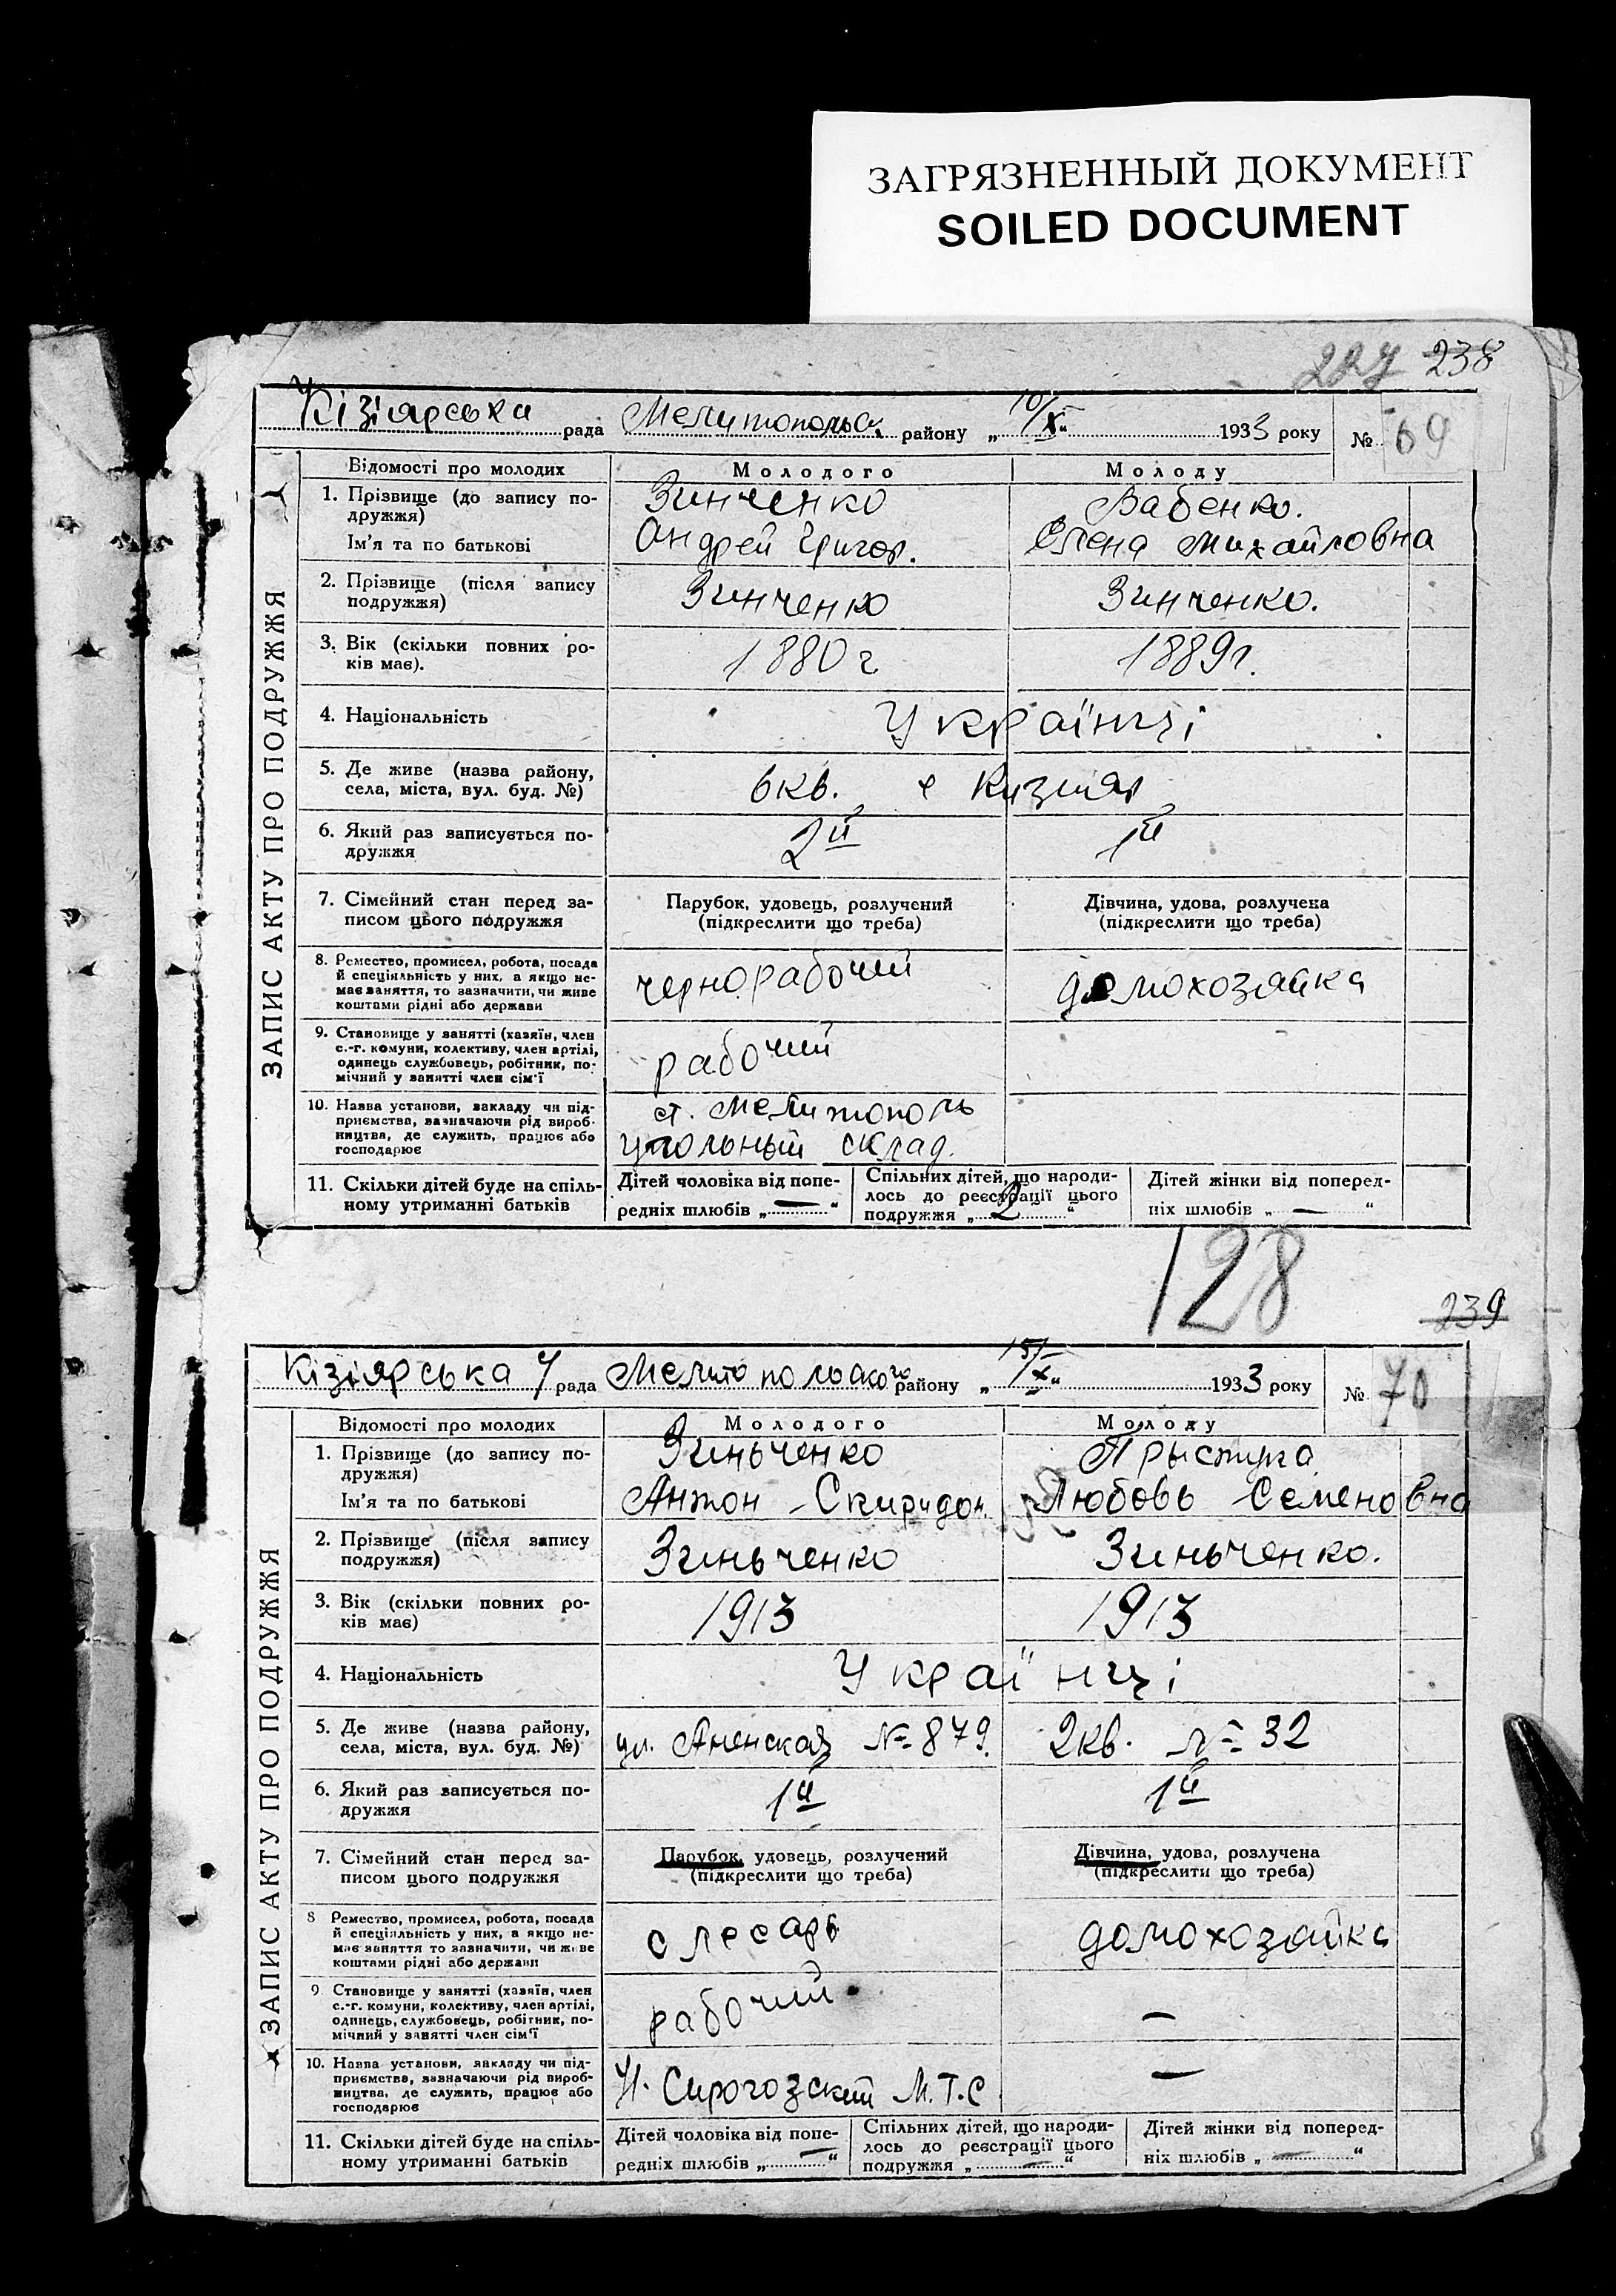 ЗАГРЯЗНЕННЫЙ ДОКУМЕНТ
SOILED DOCUMENT
227 238
Кізіярська рада Мелитопольск. району „10/X“ 1933 року № 69
ЗАПИС АКТУ ПРО ПОДРУЖЖЯ
Відомості про молодих Молодого Молоду
1. Прізвище (до запису по- Зинченко Бабенко.
дружжя)
Ім'я та по батькові Андрей Григор. Елена Михайловна
2. Прізвище (після запису Зинченко Зинченко.
подружжя)
3. Вік (скільки повних ро- 1880 г 1889 г.
ків має).
4. Національність Українці
5. Де живе (назва району, 6 кв. с Кизияр
села, міста, вул. буд. №)
6. Який раз записується по- 2й 1й
дружжя
7. Сімейний стан перед за- Парубок, удовець, розлучений Дівчина, удова, розлучена
писом цього подружжя (підкреслити що треба) (підкреслити що треба)
8. Ремество, промисел, робота, посада чернорабочий домохозяйка
й спеціяльність у них, а якщо не-
має заняття, то зазначити, чи живе
коштами рідні або держави
9. Становище у занятті (хазяїн, член рабочий
с.-г. комуни, колективу, член артілі,
одинець службовець, робітник, по-
мічний у занятті член сім'ї
10. Назва установи, закладу чи під- ст. Мелитополь
приємства, зазначаючи рід вироб-
ництва, де служить, працює або угольный склад.
господарює
11. Скільки дітей буде на спіль- Дітей чоловіка від попе- Спільних дітей, що народи- Дітей жінки від поперед-
ному утриманні батьків редніх шлюбів „—“ лось до реєстрації цього ніх шлюбів „—“
подружжя „2“
128
239
Кізіярська рада Мелитопольского району „15/X“ 1933 року № 70
ЗАПИС АКТУ ПРО ПОДРУЖЖЯ
Відомості про молодих Молодого Молоду
1. Прізвище (до запису по- Зиньченко Прыступа
дружжя)
Ім'я та по батькові Антон Скиридон Любовь Семеновна
2. Прізвище (після запису Зиньченко Зиньченко.
подружжя)
3. Вік (скільки повних ро- 1913 1913
ків має)
4. Національність Українці
5. Де живе (назва району, ул. Аненская № 879. 2 кв. № 32
села, міста, вул. буд. №)
6. Який раз записується по- 1й 1й
дружжя
7. Сімейний стан перед за- Парубок, удовець, розлучений Дівчина, удова, розлучена
писом цього подружжя (підкреслити що треба) (підкреслити що треба)
8 Ремество, промисел, робота, посада слесарь домохозяйка
й спеціяльність у них, а якщо не-
має заняття то зазначити, чи живе
коштами рідні або держави
9. Становище у занятті (хазяїн, член рабочий —
с.-г. комуни, колективу, член артілі,
одинець, службовець, робітник, по-
мічний у занятті член сім'ї
10. Назва установи, закладу чи під- Н. Сирогозский М.Т.С —
приємства, зазначаючи рід вироб-
ництва, де служить, працює або
господарює
11. Скільки дітей буде на спіль- Дітей чоловіка від попе- Спільних дітей, що народи- Дітей жінки від поперед-
ному утриманні батьків редніх шлюбів „—“ лось до реєстрації цього ніх шлюбів „—“
подружжя „—“